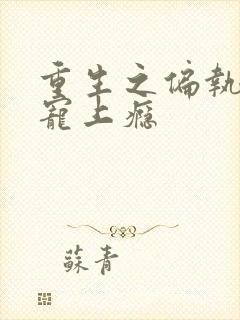 重生之偏執
寵上癮
蘇青